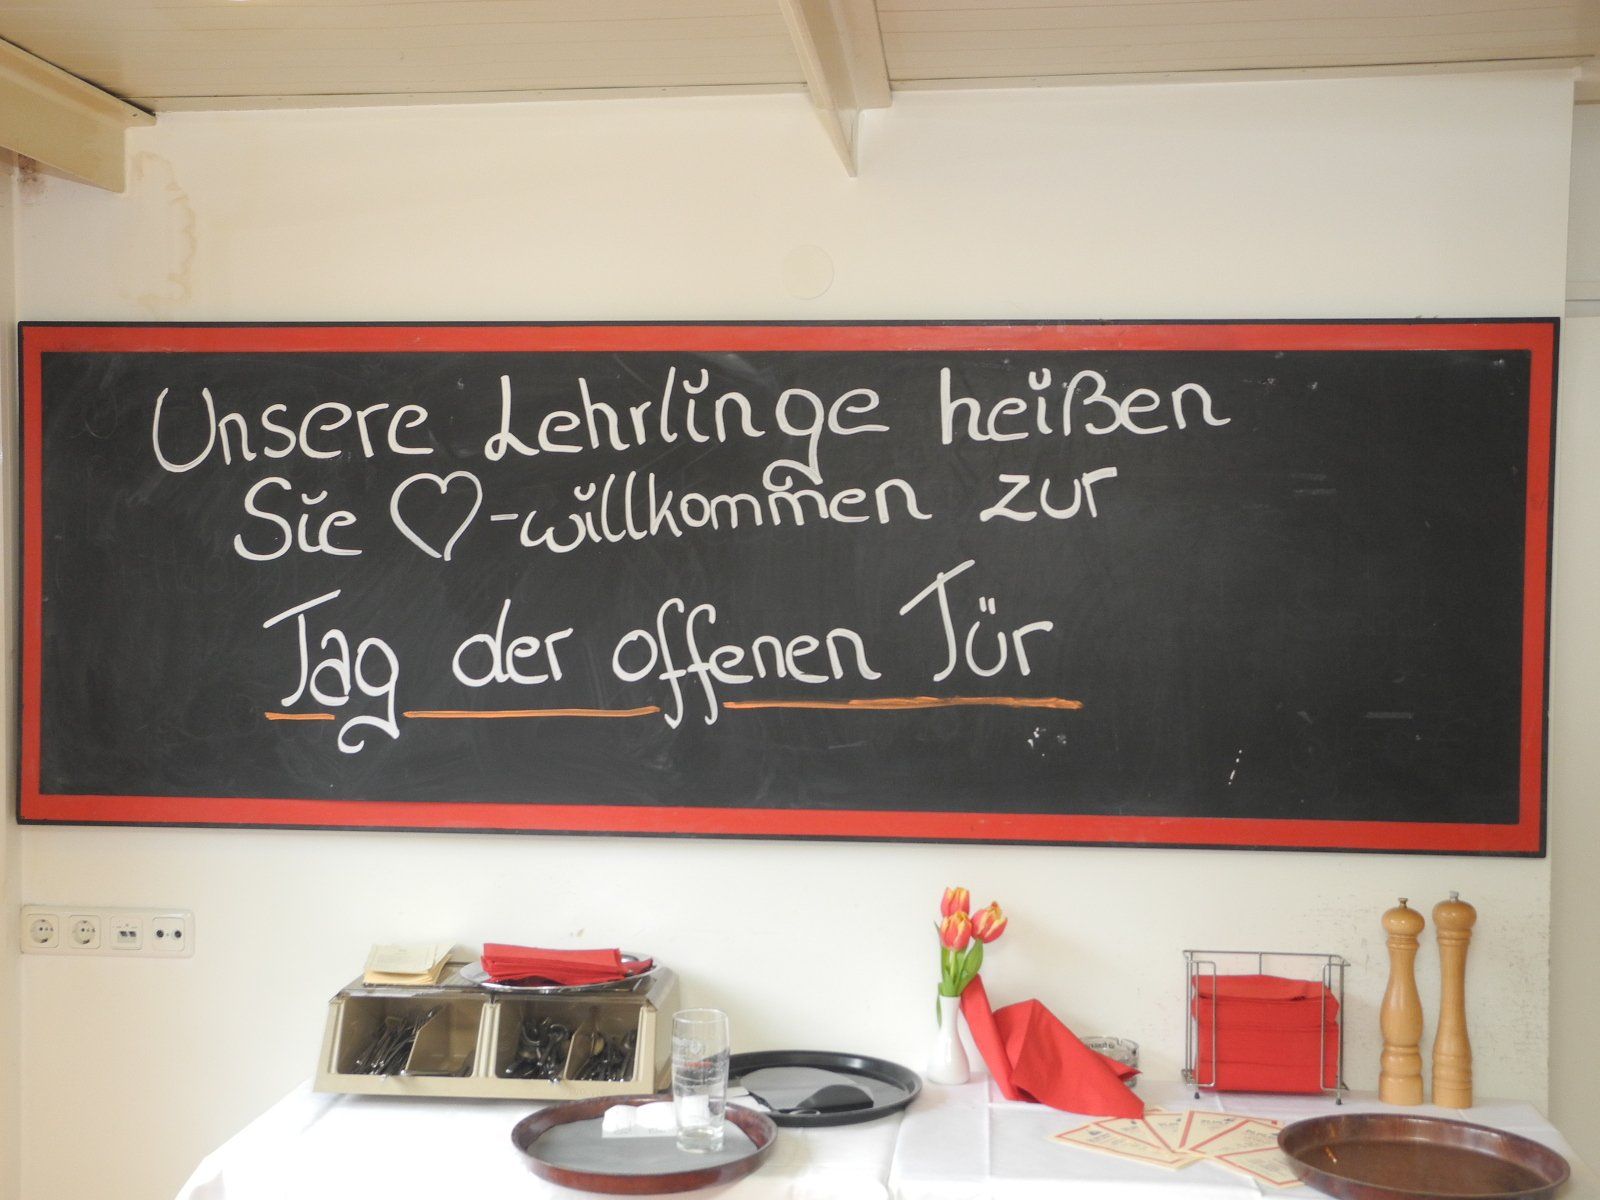 Unsere Lehrlinge heißen
Sie ♡-willkommen zur
Tag der offenen Tür